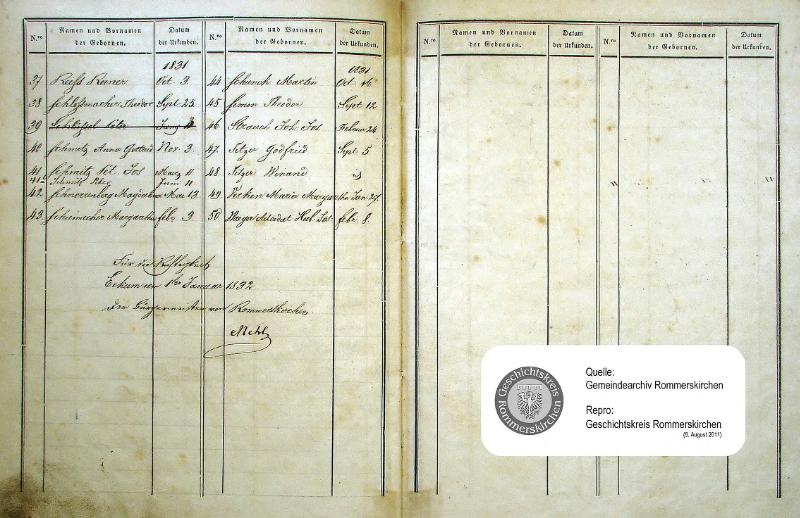 N.ro Namen und Vornamen der Gebornen. Datum der Urkunden.
N.ro Namen und Vornamen der Gebornen. Datum der Urkunden.
1831
37 Reiner Oct 3
38 Schlössmacher Theodor Sept 25
39 Schlüssel Peter Juny
40 Schmitz Anna Gottlieb Nov. 3
41 Schmitz Pet Jos Maerz 11
41a Schmidt Juni 11
42 Schnorrenberg Magdalena Mai 13
43 Schumacher Margaretha febr 3
1831
44 Schunck Martin Oct 16
45 Simon Theodor Sept 12
46 Strauch Joh Jos Februar 24
47 Godfried Sept 5
48 Winand id
49 Maria Margaretha Jan 27.
50 Hub. Jos febr 8.
Für die Richtigkeit
Eckum den 1ten Januar 1832
Der Bürgermeister von Rommerskirchen
N.ro Namen und Vornamen der Gebornen. Datum der Urkunden.
N.ro Namen und Vornamen der Gebornen. Datum der Urkunden.
Geschichtskreis
Rommerskirchen
Quelle:
Gemeindearchiv Rommerskirchen
Repro:
Geschichtskreis Rommerskirchen
(6. August 2011)